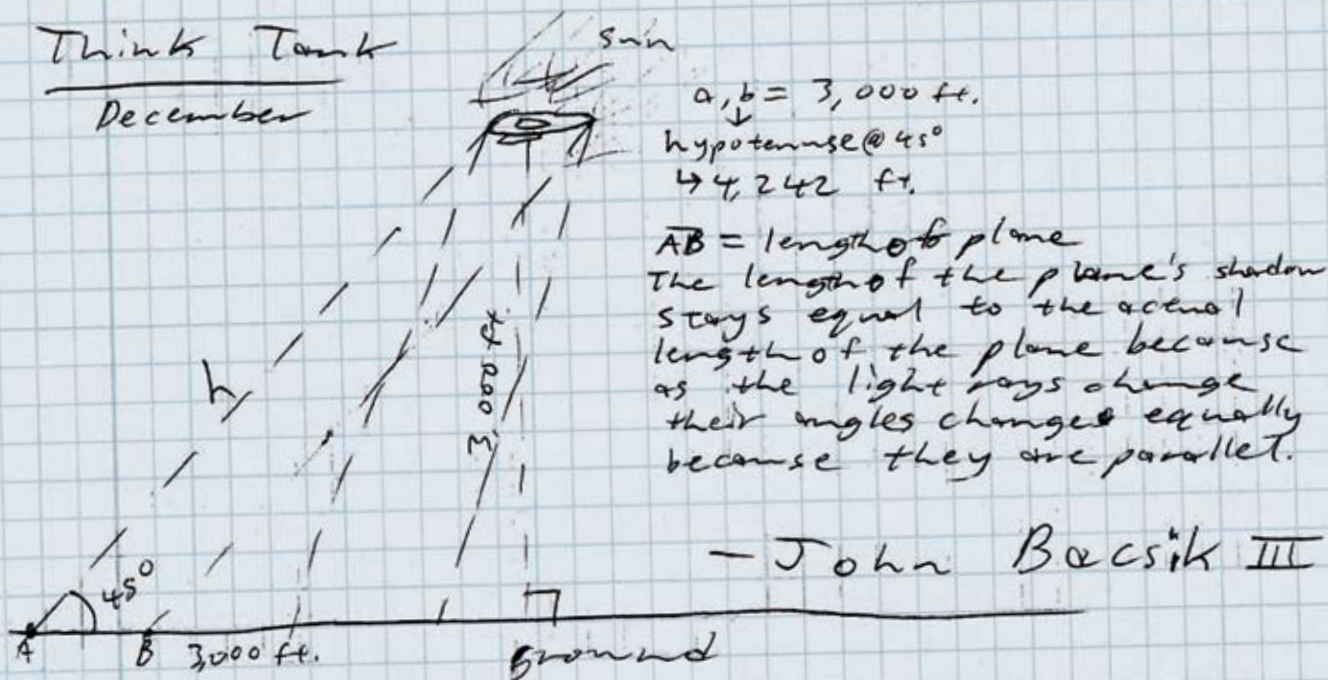 Think Tank
December
sun
a, b = 3,000 ft.
↓
hypotenuse @ 45°
↳ 4,242 ft.
AB = length of plane
The length of the plane's shadow
stays equal to the actual
length of the plane because
as the light rays change
their angles changes equally
because they are parallel.
- John Bacsik III
h
3,000 ft
45°
A B 3,000 ft. ground